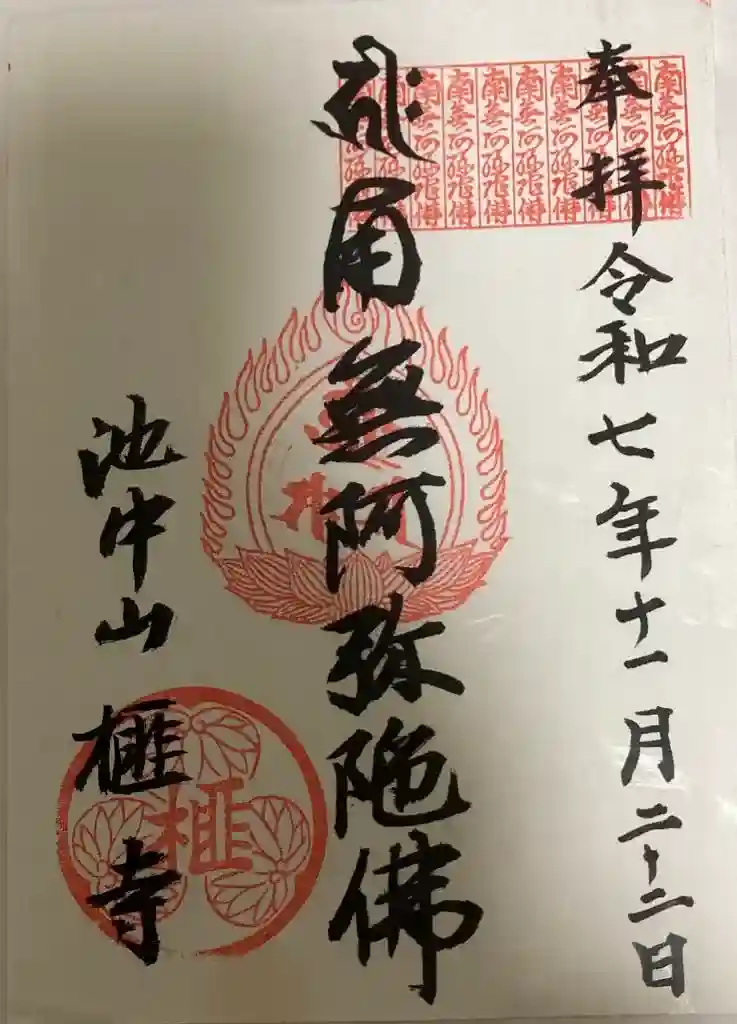 奉拝 令和七年十一月二十二日
南無阿弥陀佛
南無阿弥陀佛
南無阿弥陀佛
南無阿弥陀佛
南無阿弥陀佛
南無阿弥陀佛
南無阿弥陀佛
南無阿弥陀佛
南無阿弥陀佛
南無阿弥陀佛
南無阿弥陀佛
池中山 榧寺
榧